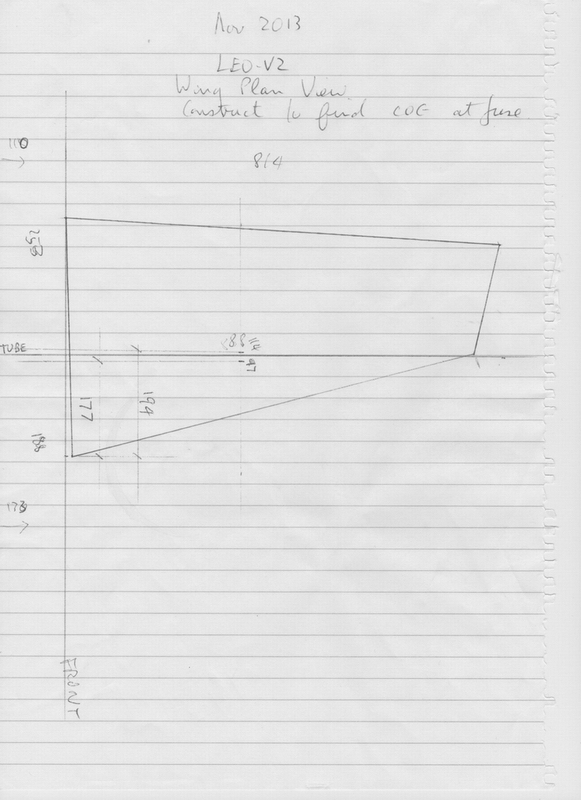 Nov 2013
LEO-V2
Wing Plan View
Construct to find COG at fuse
814
TUBE
97
177
194
188
FRONT